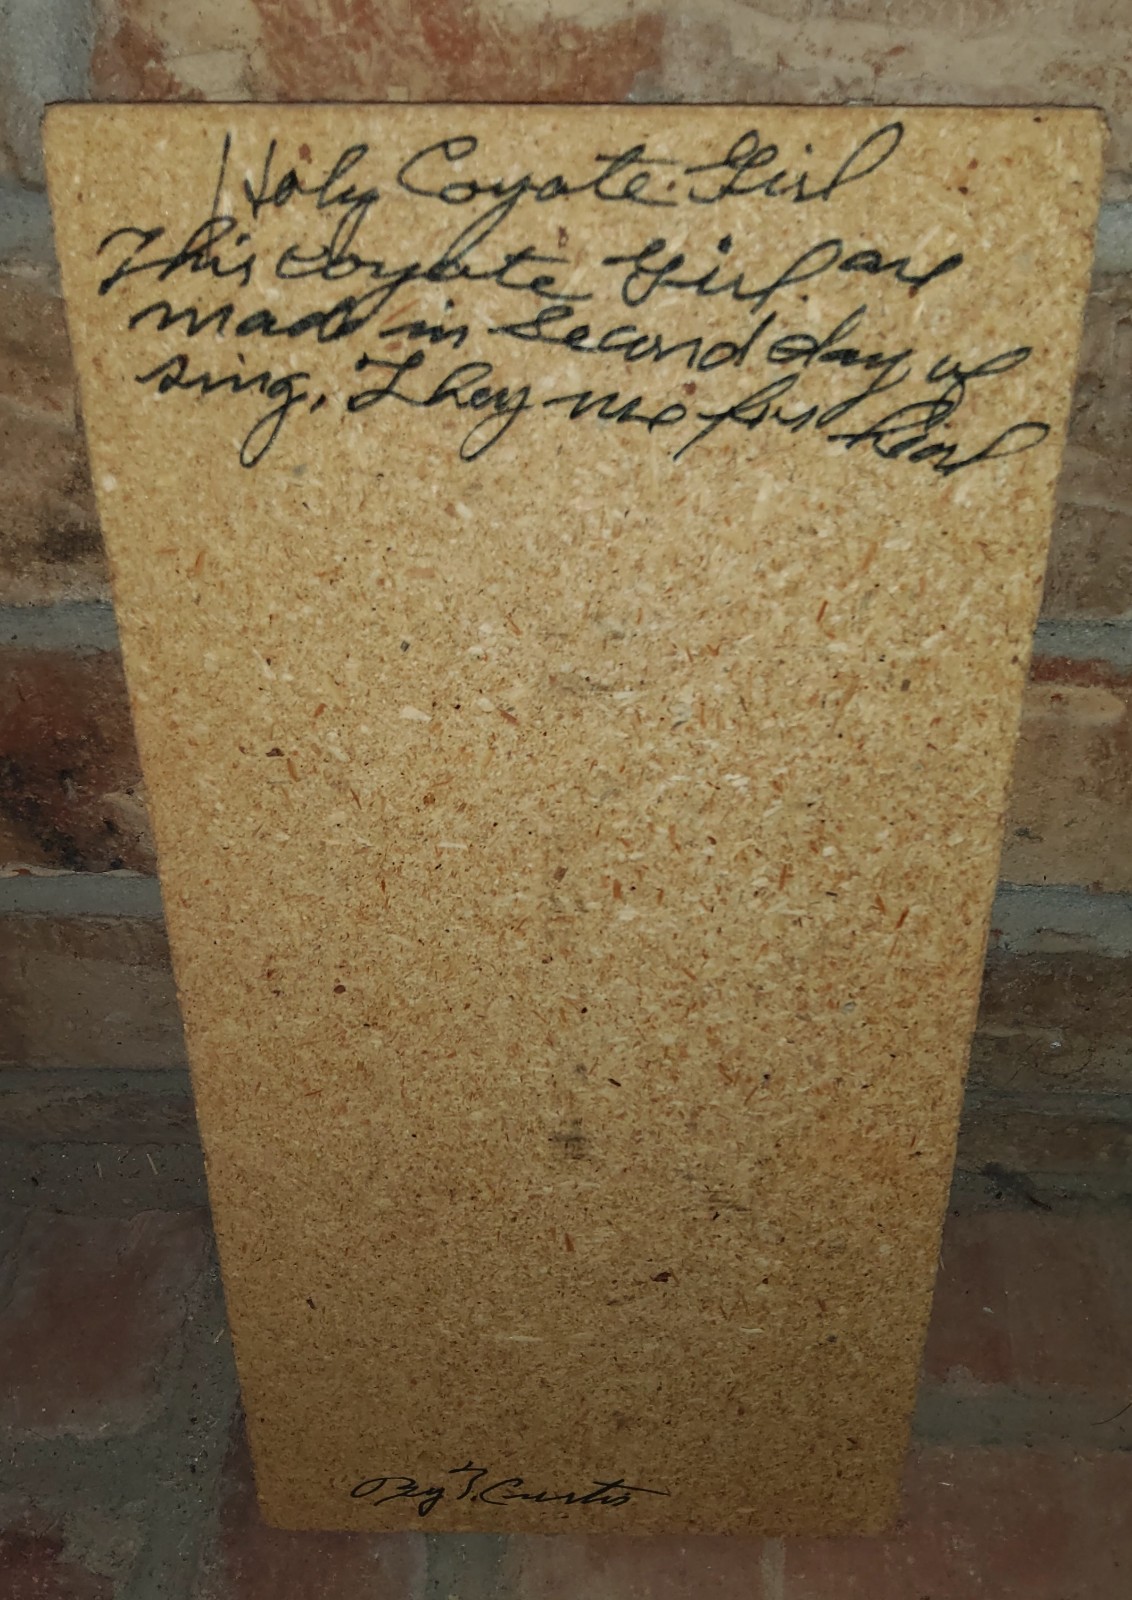 Holy Coyote Girl
This coyote Girl. are
made in Second day of
sing. They use for heal
By T. Curtis